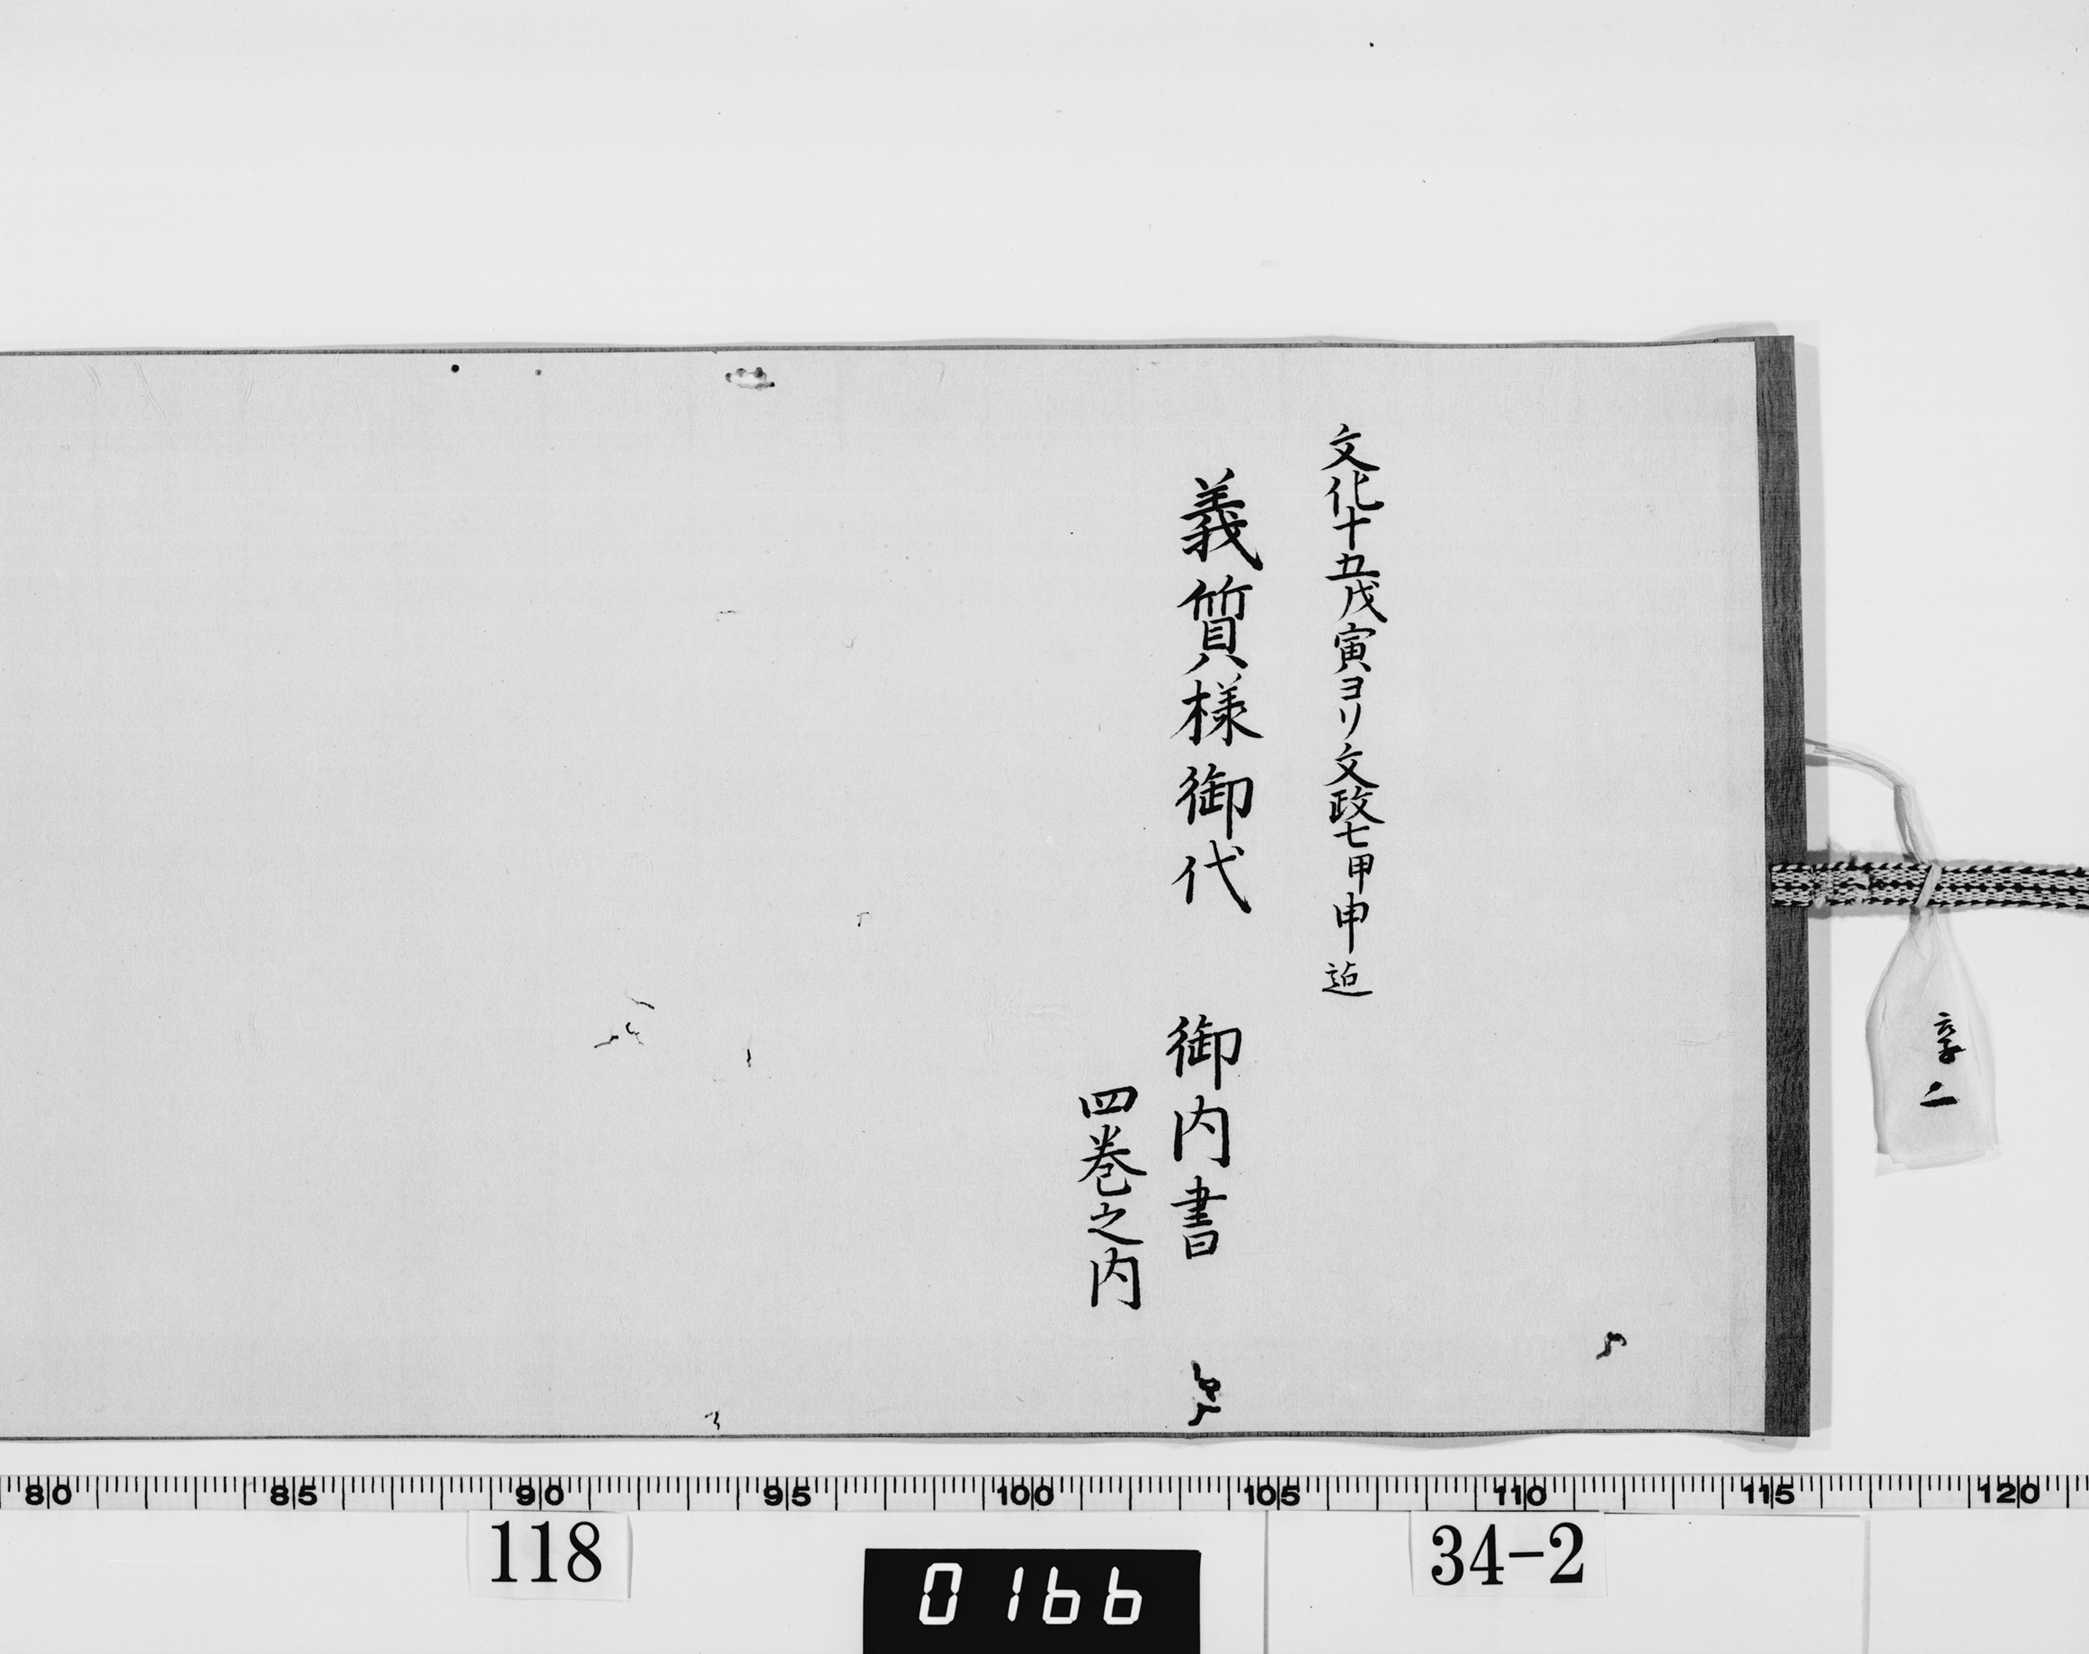 文化十五戊寅ヨリ文政七甲申迠
義質様御代 御内書
四巻之内
二
80 85 90 95 100 105 110 115 120
118
0166
34-2